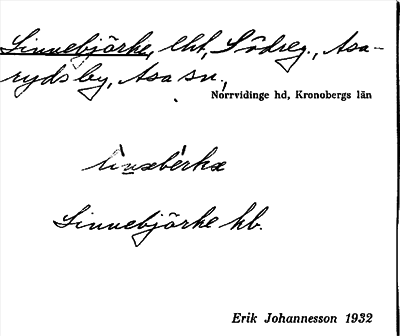 Linnebjörke, lht, Södreg., Asa-
ryds by, Asa sn.,
Norrvidinge hd, Kronobergs län
Linnebjörke hb.
Erik Johannesson 1932